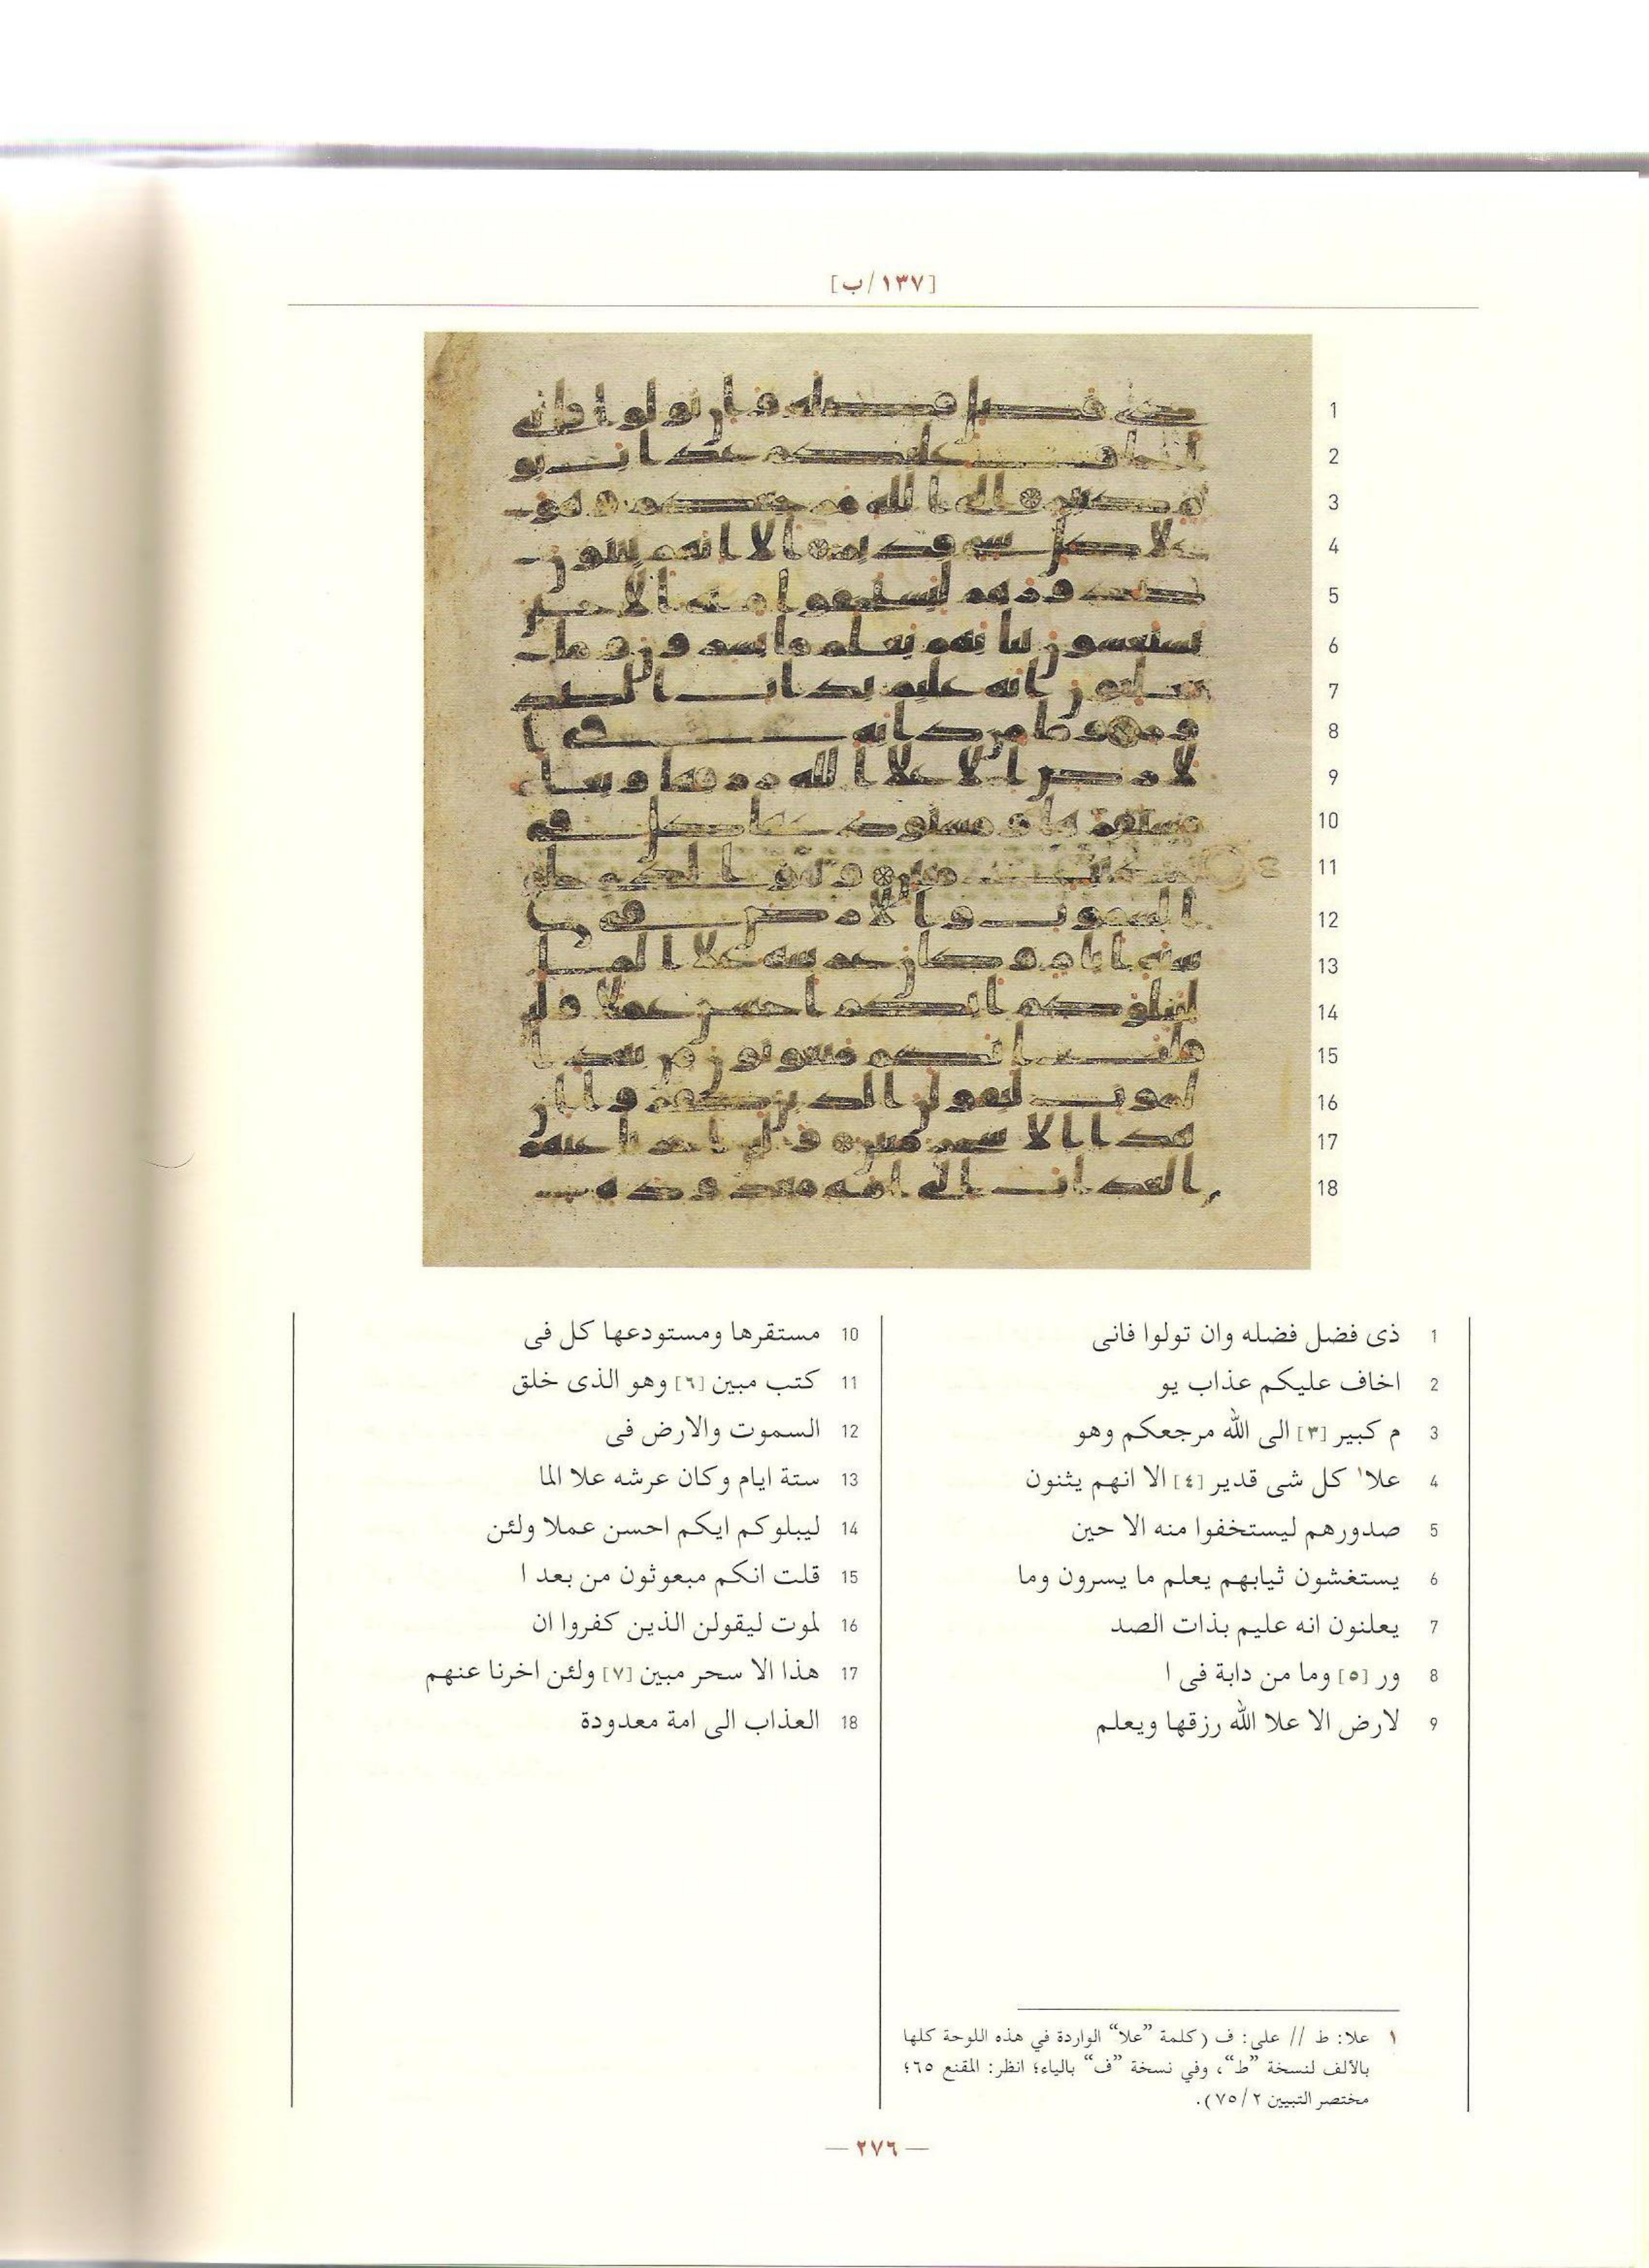 [١٣٧/ب]
1 ذى فضل فضله وان تولوا فانى
2 اخاف عليكم عذاب يو
3 م كبير [٣] الى الله مرجعكم وهو
4 علا١ كل شى قدير [٤] الا انهم يثنون
5 صدورهم ليستخفوا منه الا حين
6 يستغشون ثيابهم يعلم ما يسرون وما
7 يعلنون انه عليم بذات الصد
8 ور [٥] وما من دابة فى ا
9 لارض الا علا الله رزقها ويعلم
10 مستقرها ومستودعها كل فى
11 كتب مبين [٦] وهو الذى خلق
12 السموت والارض فى
13 ستة ايام وكان عرشه علا الما
14 ليبلوكم ايكم احسن عملا ولئن
15 قلت انكم مبعوثون من بعد ا
16 لموت ليقولن الذين كفروا ان
17 هذا الا سحر مبين [٧] ولئن اخرنا عنهم
18 العذاب الى امة معدودة
١ علا: ط // على: ف (كلمة “علا“ الواردة في هذه اللوحة كلها
بالألف لنسخة “ط“، وفي نسخة “ف“ بالياء؛ انظر: المقنع ٦٥؛
مختصر التبيين ٧٥/٢).
— ٢٧٦ —